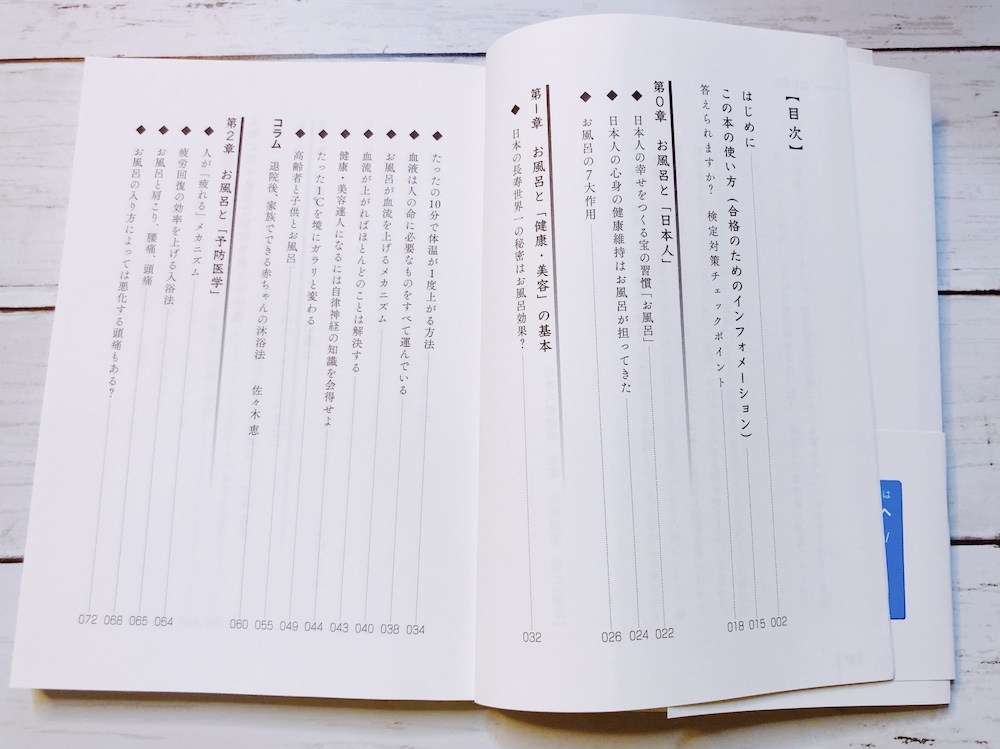 【目次】
はじめに 002
この本の使い方(合格のためのインフォメーション) 015
答えられますか? 検定対策チェックポイント 018
第0章 お風呂と「日本人」
◆ 日本人の幸せをつくる宝の習慣「お風呂」 022
◆ 日本人の心身の健康維持はお風呂が担ってきた 024
◆ お風呂の7大作用 026
第1章 お風呂と「健康・美容」の基本
◆ 日本の長寿世界一の秘密はお風呂効果? 032
◆ たったの10分で体温が1度上がる方法 034
◆ 血液は人の命に必要なものをすべて運んでいる 038
◆ お風呂が血流を上げるメカニズム 040
◆ 血流が上がればほとんどのことは解決する 043
◆ 健康・美容達人になるには自律神経の知識を会得せよ 044
◆ たった1℃を境にガラリと変わる 049
◆ 高齢者と子供とお風呂 055
コラム 退院後、家族でできる赤ちゃんの沐浴法 佐々木 恵 060
第2章 お風呂と「予防医学」
◆ 人が「疲れる」メカニズム 064
◆ 疲労回復の効率を上げる入浴法 065
◆ お風呂と肩こり、腰痛、頭痛 068
◆ お風呂の入り方によっては悪化する頭痛もある? 072
は
へ